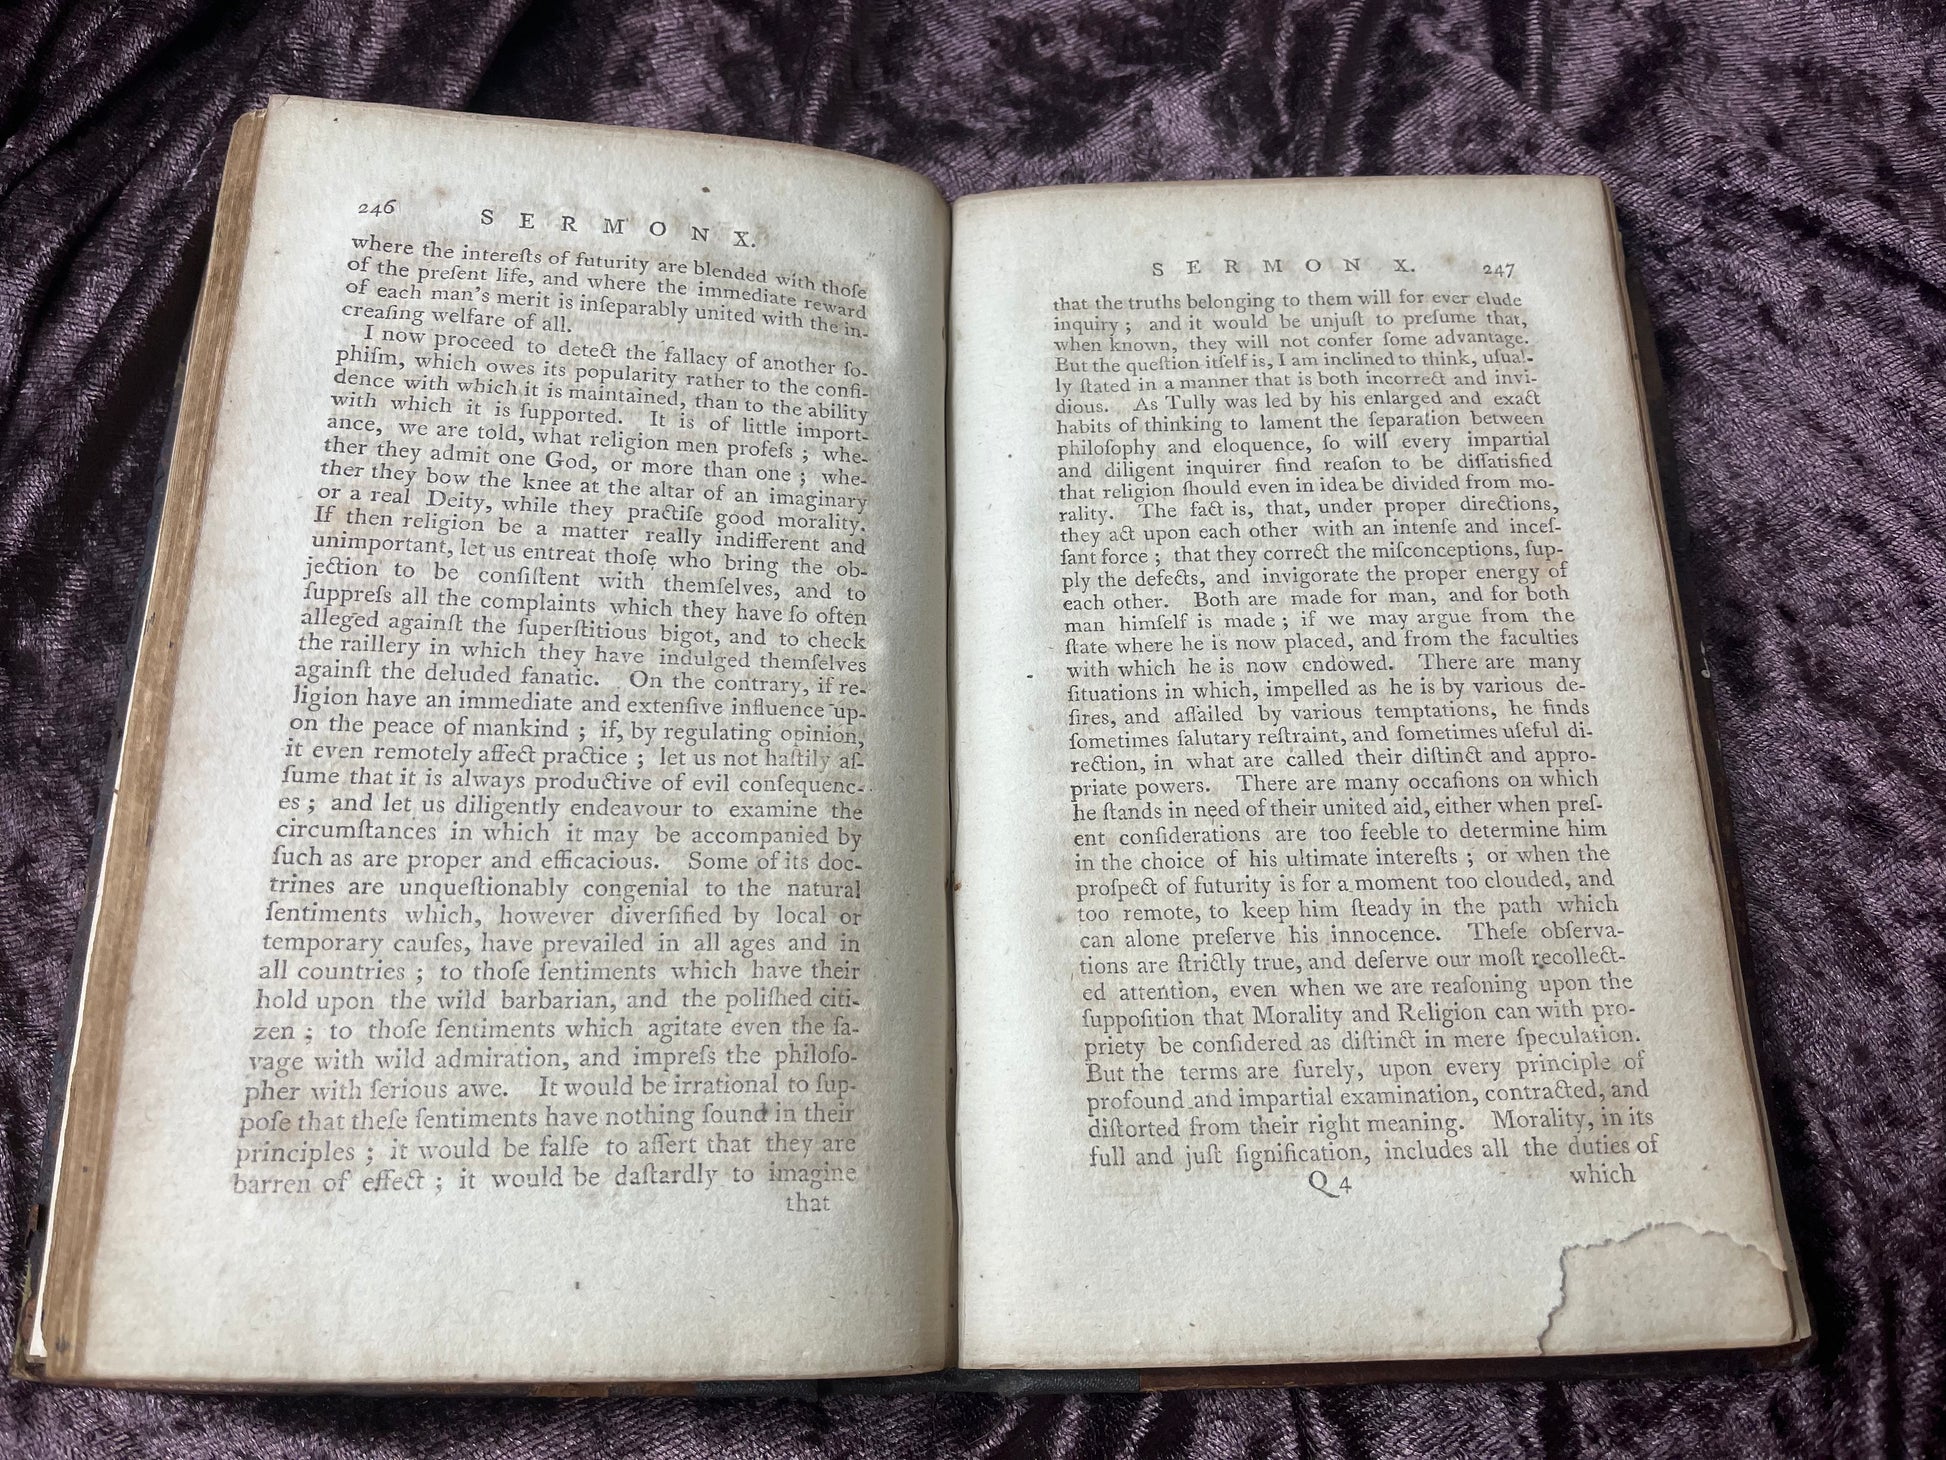 246 SERMON X.
where the intereſts of futurity are blended with thoſe
of the preſent life, and where the immediate reward
of each man's merit is inſeparably united with the in-
creaſing welfare of all.
I now proceed to detect the fallacy of another ſo-
phiſm, which owes its popularity rather to the confi-
dence with which it is maintained, than to the ability
with which it is ſupported. It is of little import-
ance, we are told, what religion men profeſs ; whe-
ther they admit one God, or more than one ; whe-
ther they bow the knee at the altar of an imaginary
or a real Deity, while they practiſe good morality.
If then religion be a matter really indifferent and
unimportant, let us entreat thoſe who bring the ob-
jection to be conſiſtent with themſelves, and to
ſuppreſs all the complaints which they have ſo often
alleged againſt the ſuperſtitious bigot, and to check
the raillery in which they have indulged themſelves
againſt the deluded fanatic. On the contrary, if re-
ligion have an immediate and extenſive influence up-
on the peace of mankind ; if, by regulating opinion,
it even remotely affect practice ; let us not haſtily aſ-
ſume that it is always productive of evil conſequenc-
es ; and let us diligently endeavour to examine the
circumſtances in which it may be accompanied by
ſuch as are proper and efficacious. Some of its doc-
trines are unqueſtionably congenial to the natural
ſentiments which, however diverſified by local or
temporary cauſes, have prevailed in all ages and in
all countries ; to thoſe ſentiments which have their
hold upon the wild barbarian, and the poliſhed citi-
zen ; to thoſe ſentiments which agitate even the ſa-
vage with wild admiration, and impreſs the philoſo-
pher with ſerious awe. It would be irrational to ſup-
poſe that theſe ſentiments have nothing found in their
principles ; it would be falſe to aſſert that they are
barren of effect ; it would be daſtardly to imagine
that
SERMON X. 247
that the truths belonging to them will for ever elude
inquiry ; and it would be unjuſt to preſume that,
when known, they will not confer ſome advantage.
But the queſtion itſelf is, I am inclined to think, uſual-
ly ſtated in a manner that is both incorrect and invi-
dious. As Tully was led by his enlarged and exact
habits of thinking to lament the ſeparation between
philoſophy and eloquence, ſo will every impartial
and diligent inquirer find reaſon to be diſſatisfied
that religion ſhould even in idea be divided from mo-
rality. The fact is, that, under proper directions,
they act upon each other with an intenſe and inceſ-
ſant force ; that they correct the miſconceptions, ſup-
ply the defects, and invigorate the proper energy of
each other. Both are made for man, and for both
man himſelf is made ; if we may argue from the
ſtate where he is now placed, and from the faculties
with which he is now endowed. There are many
ſituations in which, impelled as he is by various de-
ſires, and aſſailed by various temptations, he finds
ſometimes ſalutary reſtraint, and ſometimes uſeful di-
rection, in what are called their diſtinct and appro-
priate powers. There are many occaſions on which
he ſtands in need of their united aid, either when preſ-
ent conſiderations are too feeble to determine him
in the choice of his ultimate intereſts ; or when the
proſpect of futurity is for a moment too clouded, and
too remote, to keep him ſteady in the path which
can alone preſerve his innocence. Theſe obſerva-
tions are ſtrictly true, and deſerve our moſt recollect-
ed attention, even when we are reaſoning upon the
ſuppoſition that Morality and Religion can with pro-
priety be conſidered as diſtinct in mere ſpeculation.
But the terms are ſurely, upon every principle of
profound and impartial examination, contracted, and
diſtorted from their right meaning. Morality, in its
full and juſt ſignification, includes all the duties of
Q 4 which